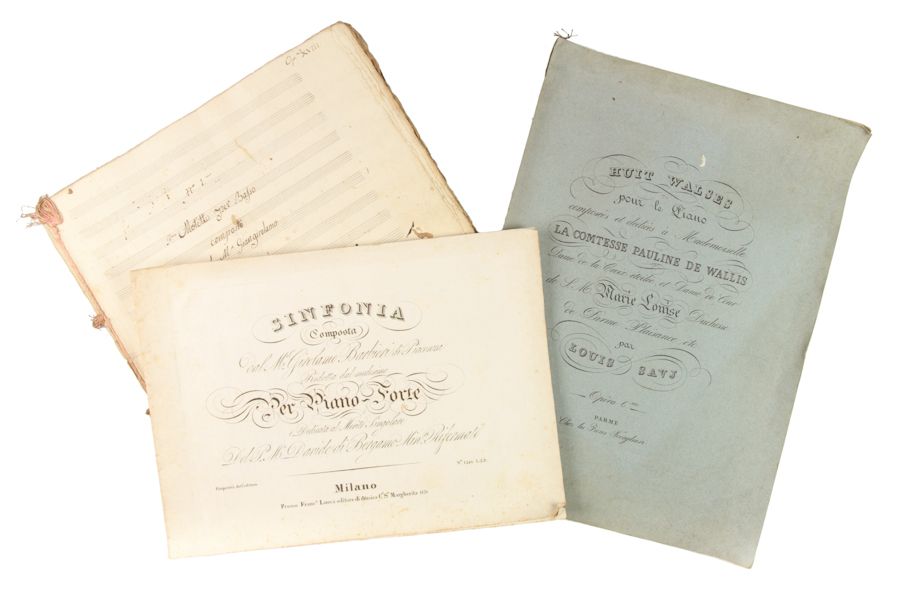 Op. XVIII
N. 1
Motetto Per Basso
composto
Giangirolamo
SINFONIA
Composta
dal Mo. Girolamo Barbieri di Piacenza
Ridotta dal medesimo
Per Piano-Forte
e Dedicata al Merito Singolare
Del P. Mo. Davide di Bergamo Min. Riformato
Proprietà dell'editore
Milano
Presso Franco. Lucca editore di Musica Ca. Sa. Margherita
HUIT WALSES
pour le Piano
composés et dédiées à Mademoiselle
LA COMTESSE PAULINE DE WALLIS
Dame de la Croix étoilée et Dame de Cour
de S. M. Marie Louise Duchesse
de Parme Plaisance etc
par
LOUIS SAVJ
Opéra
PARME
Chez